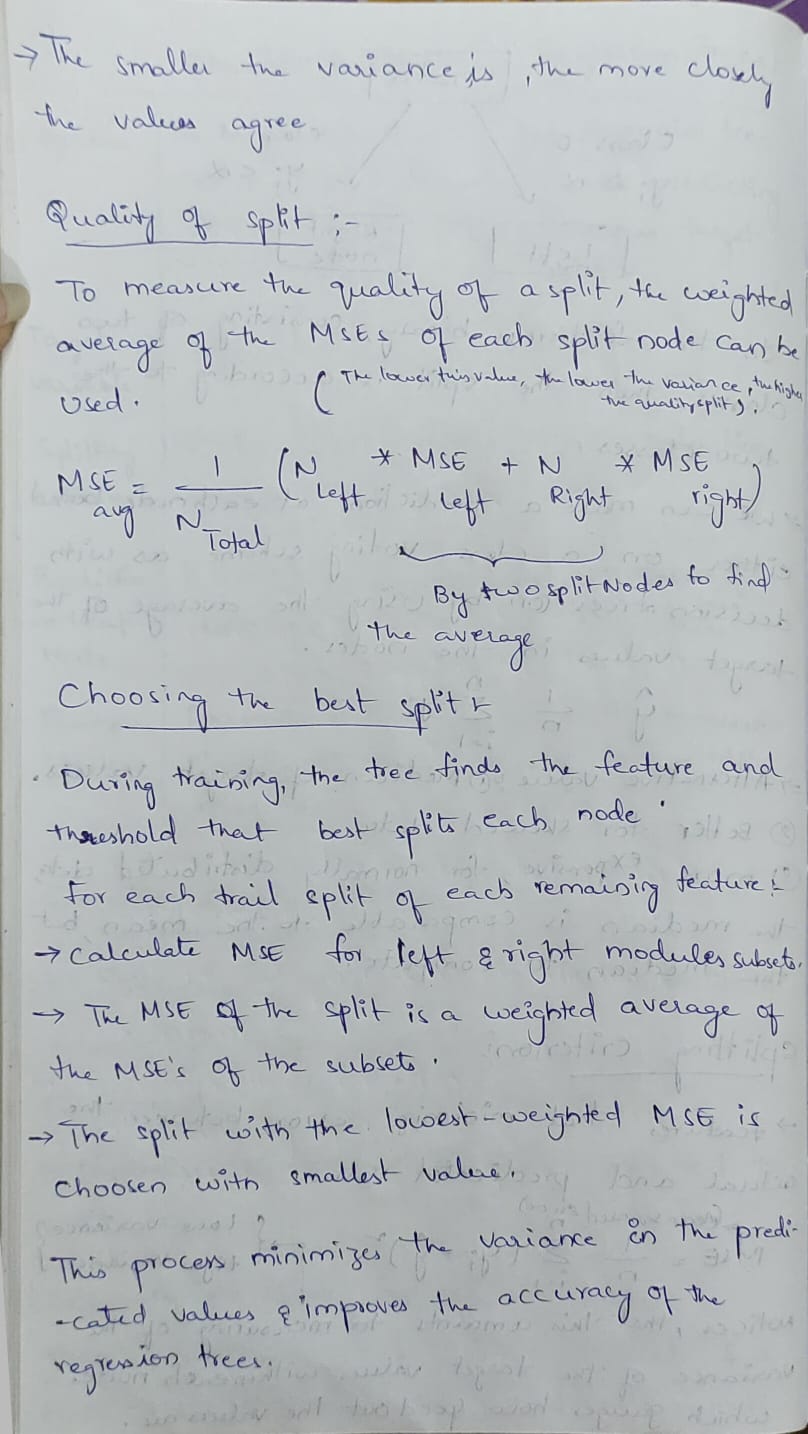 → The smaller the variance is, the more closely
the values agree
Quality of split :-
To measure the quality of a split, the weighted
average of the MSEs of each split node can be
used. (The lower this value, the lower the variance, the higher
the quality split).
MSE avg = 1 / N Total (N Left * MSE left + N Right * MSE right)
By two split Nodes to find
the average
Choosing the best split
. During training, the tree finds the feature and
threshold that best splits each node .
For each trail split of each remaining feature :
→ Calculate MSE for left & right modules subsets.
→ The MSE of the split is a weighted average of
the MSE's of the subsets .
→ The split with the lowest-weighted MSE is
choosen with smallest value.
This process minimizes the variance in the predi-
-cated values & improves the accuracy of the
regression trees.